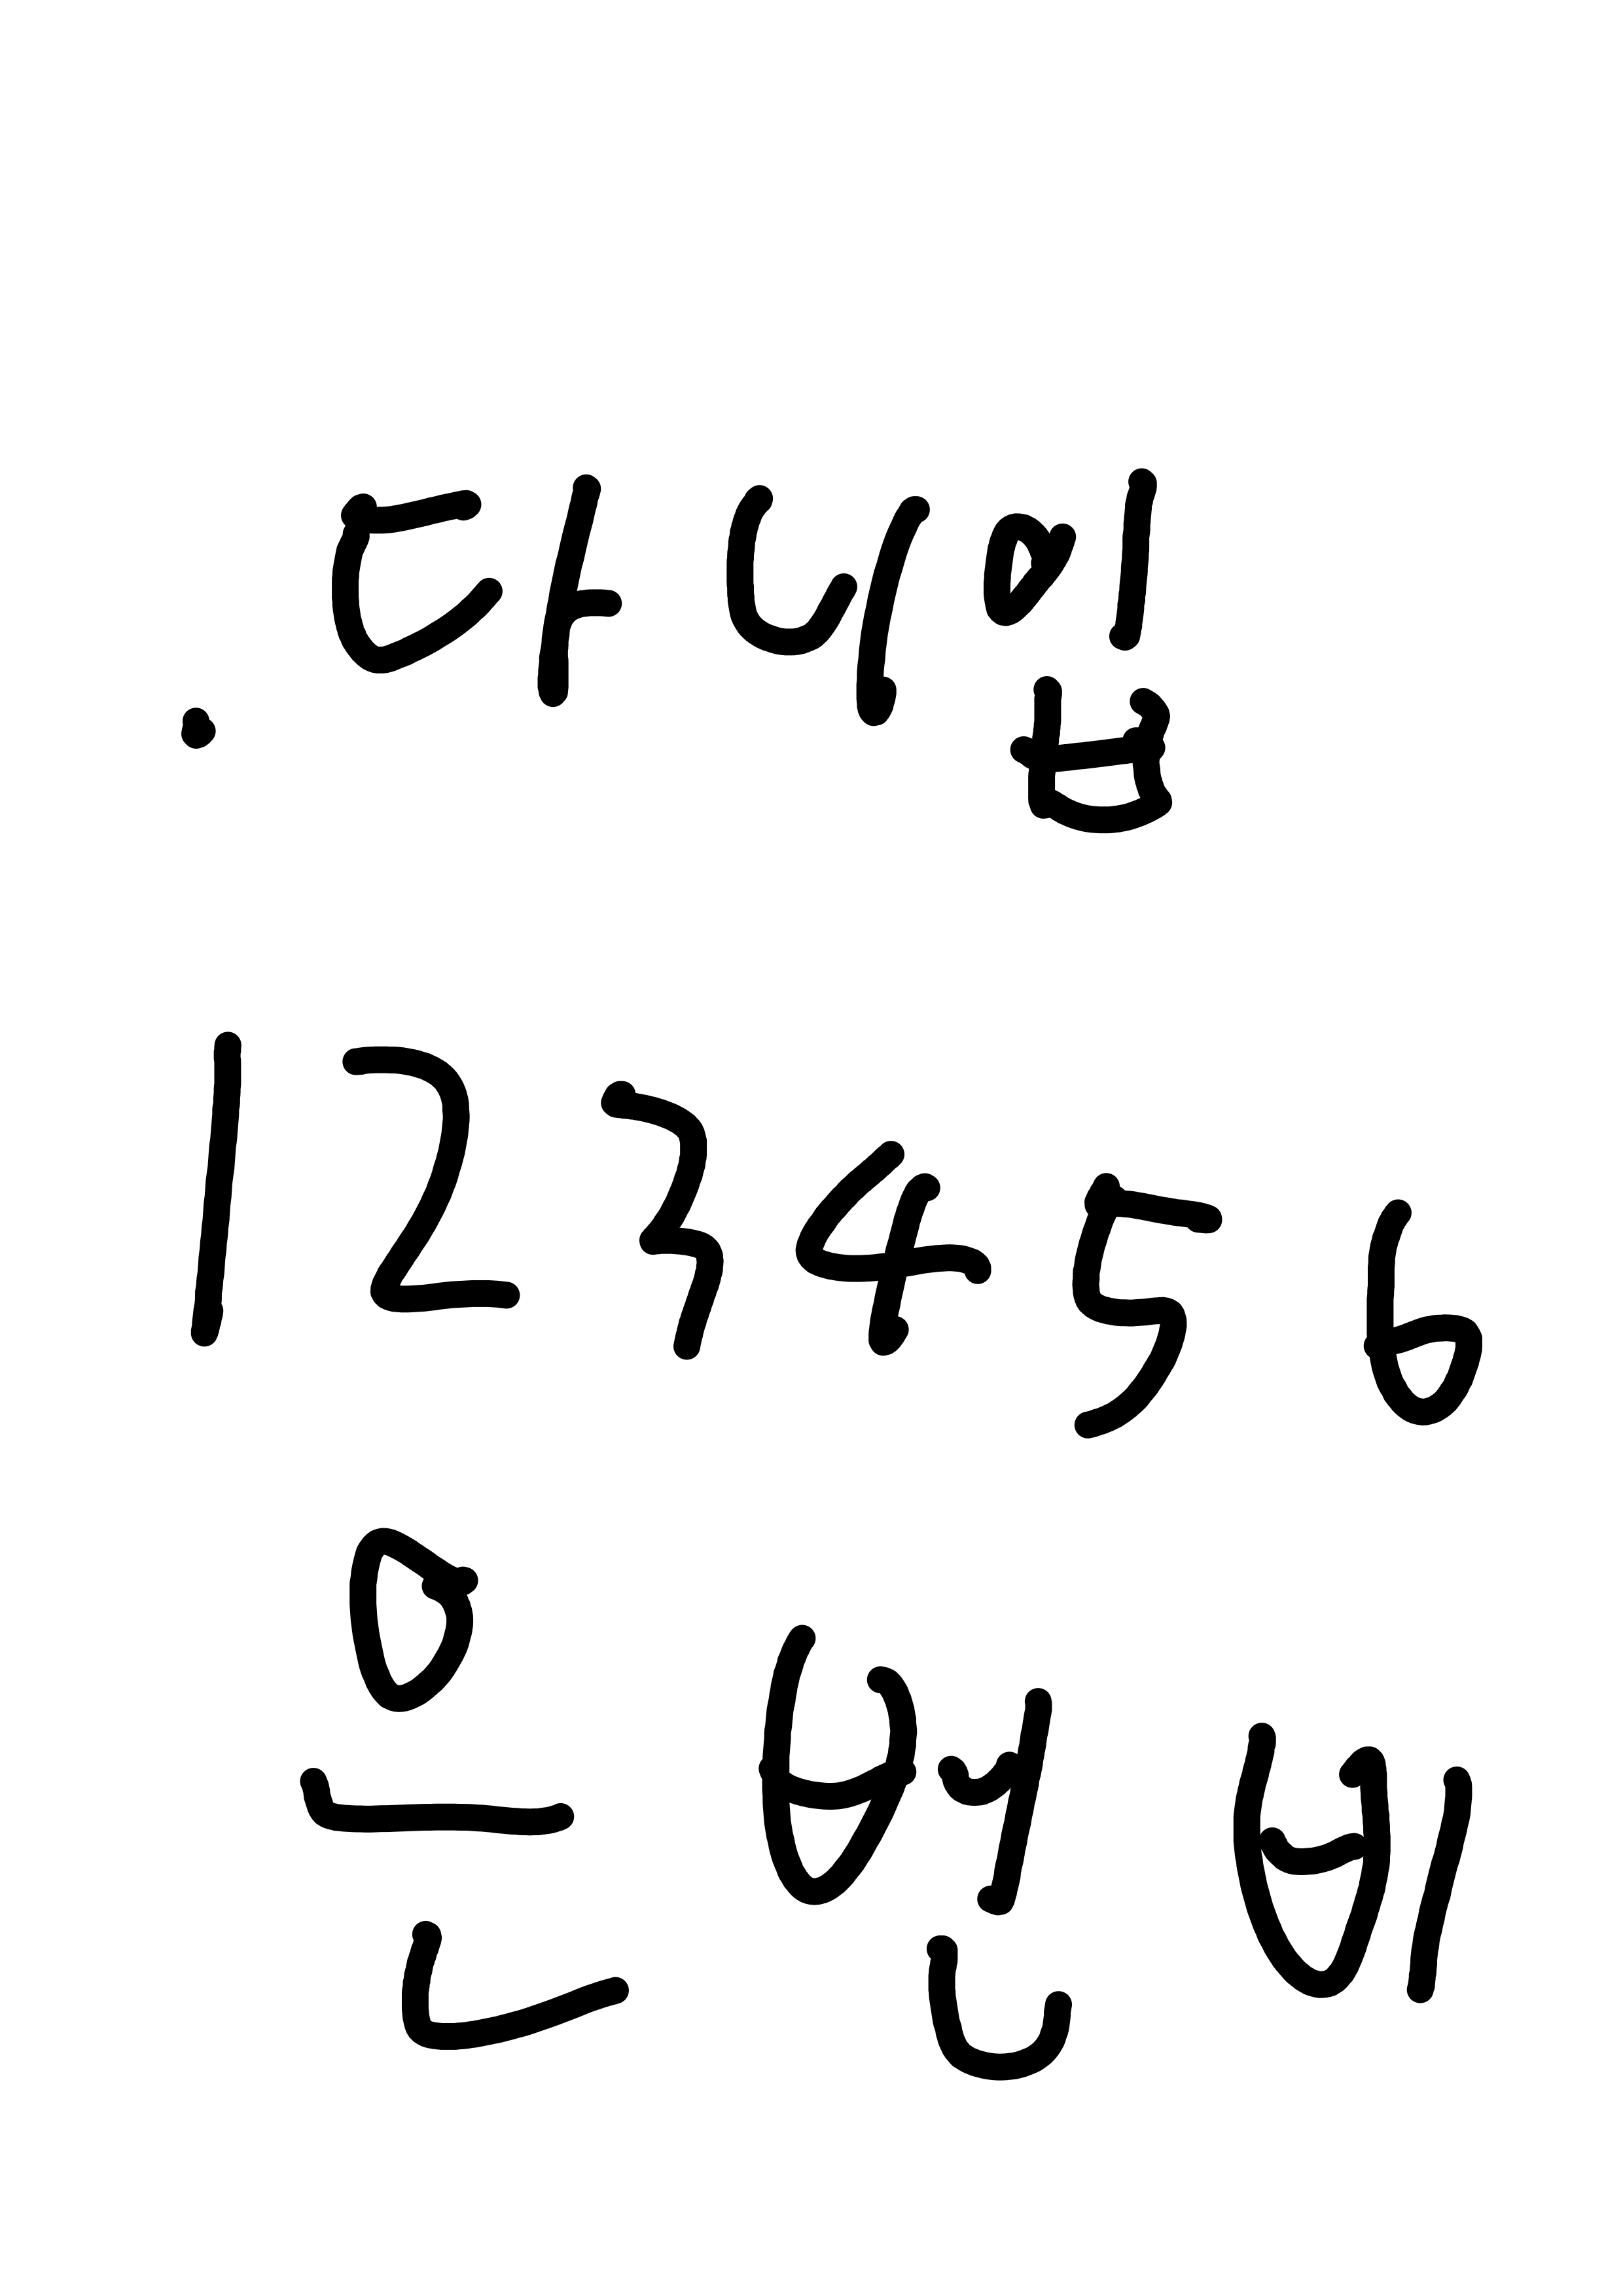 . 다니입
1 2 3 4 5 6
은 번 비